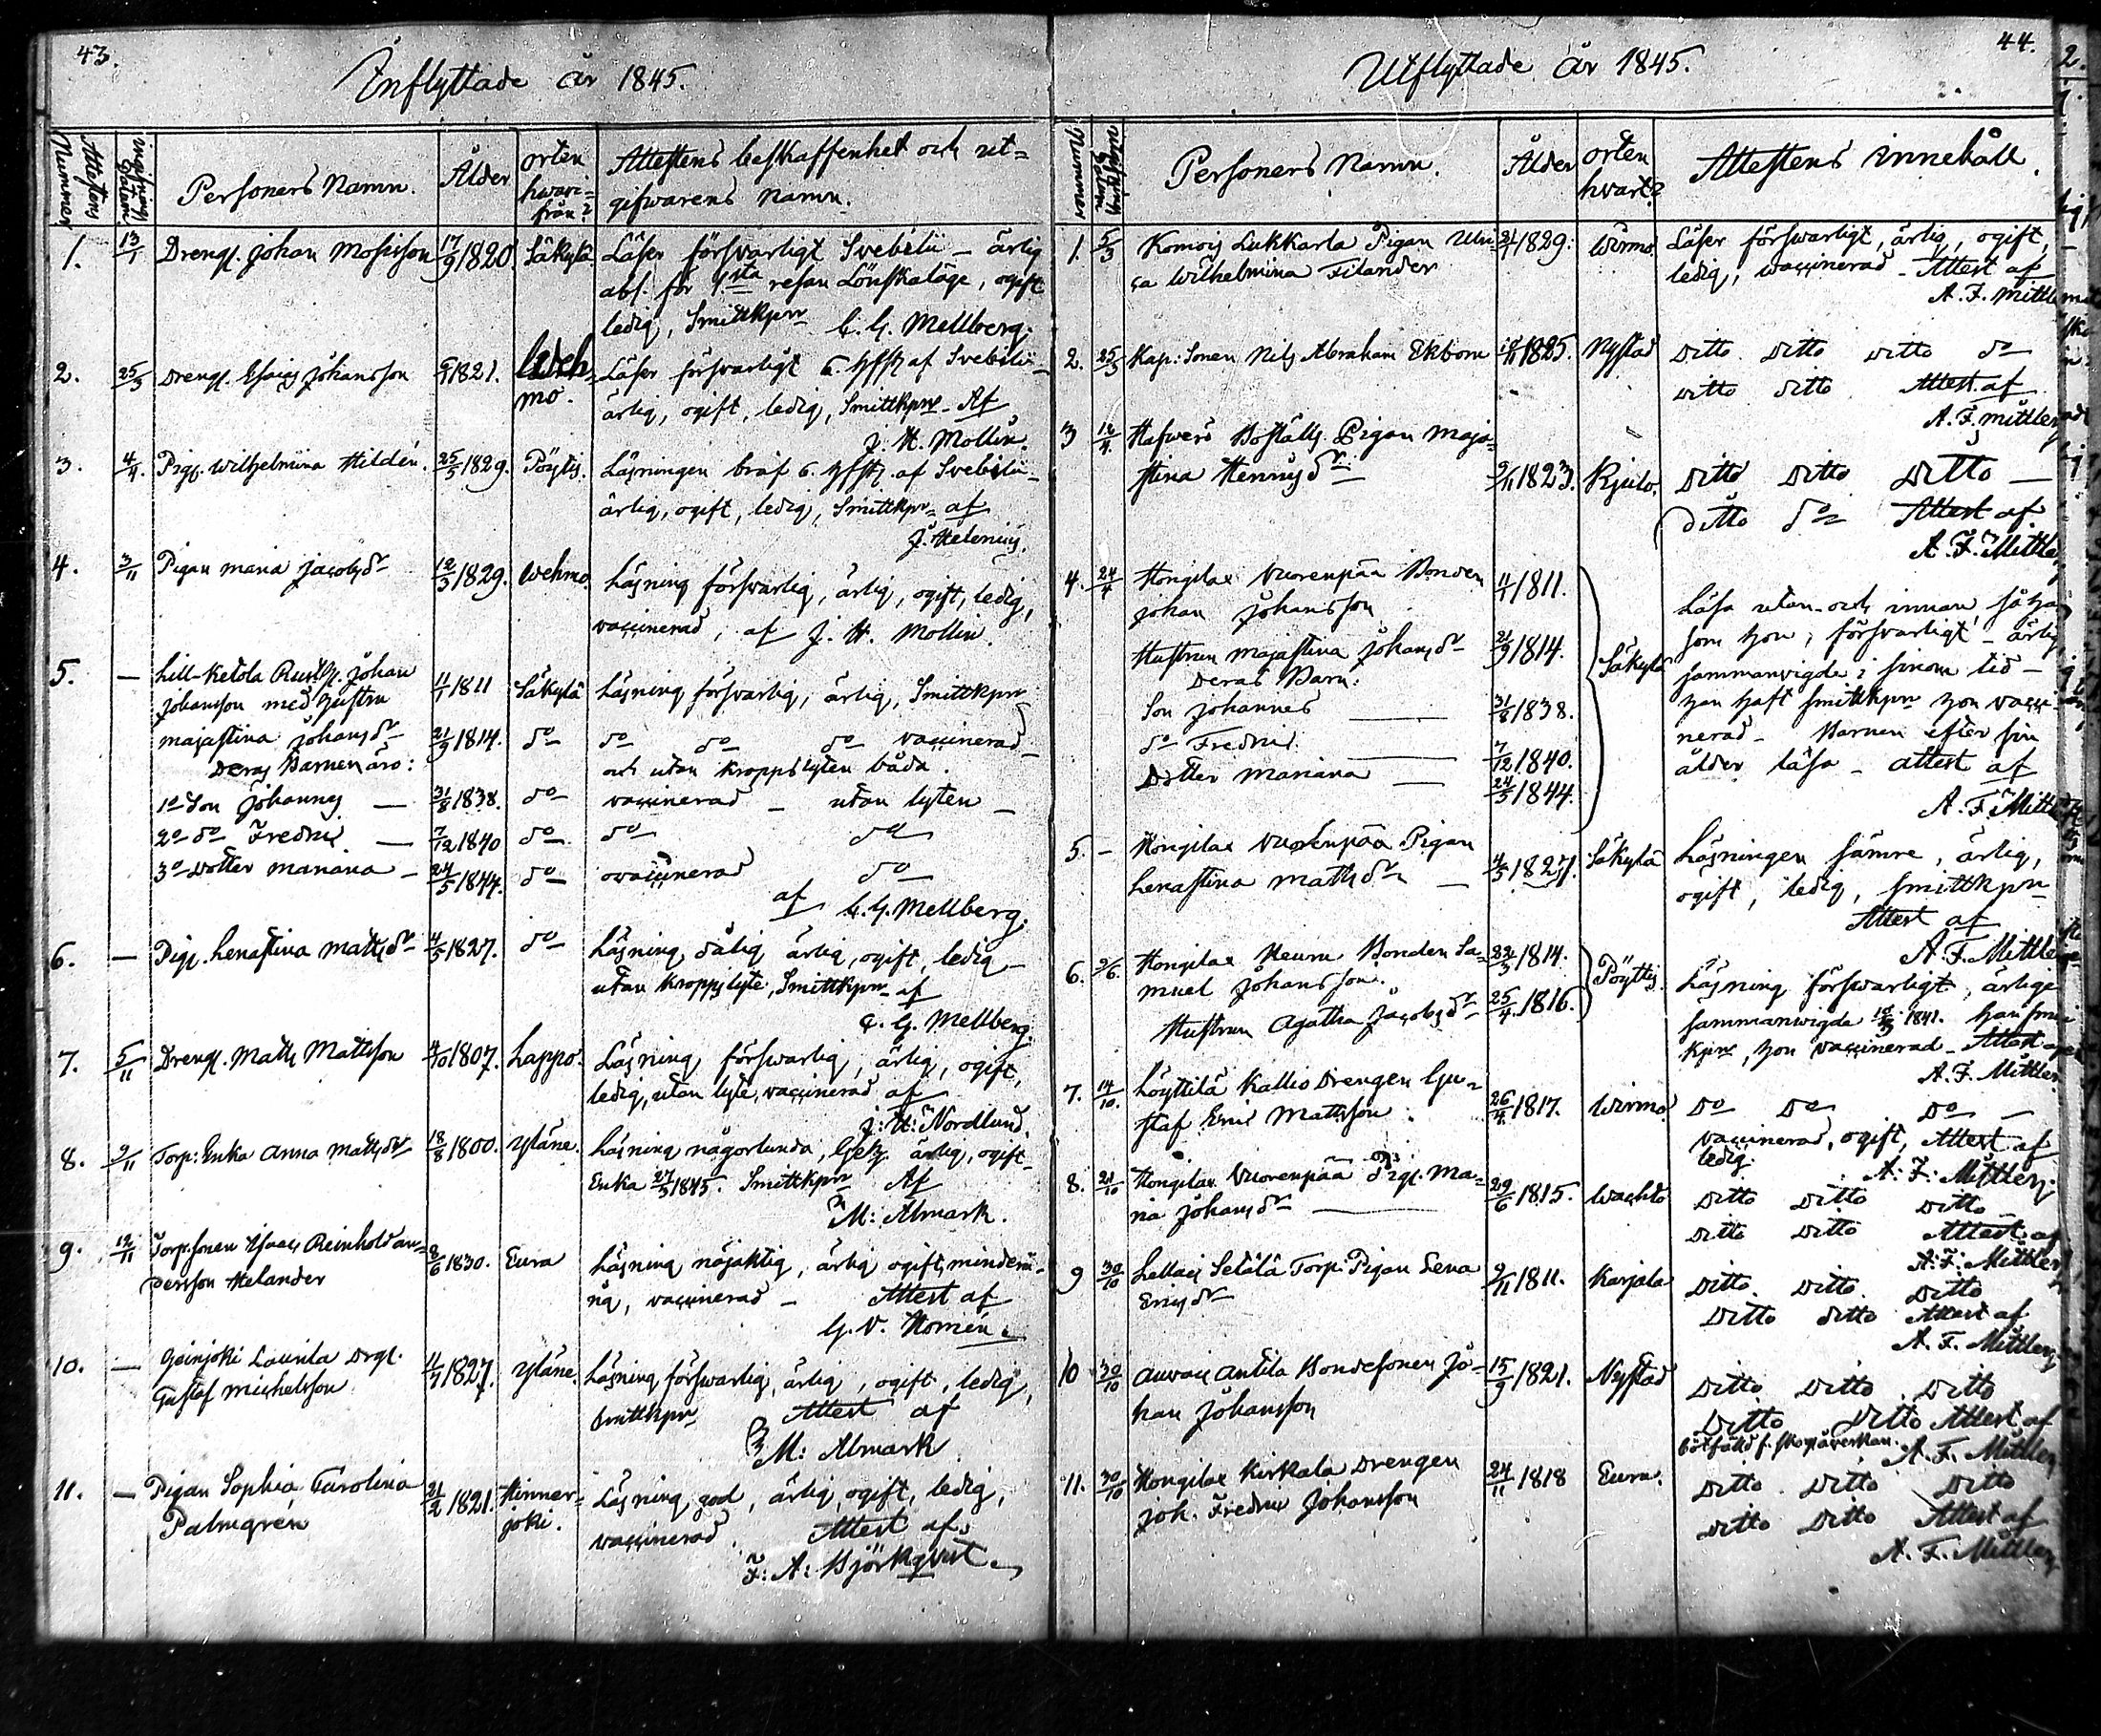 43.
Inflyttade år 1845.
Attestens Nummer
Personers Namn.
Ålder
orten hwari= från?
Attestens beskaffenhet och ut=
gifwarens namn.
1. 13/1 Drengn. Johan Mosisson 17/9 1820. Säkylä. Läser förswarligt Svebilii – ärlig
abs. för 1sta resan Lönskaläge, ogift
ledig, Smittkpr C. G. Mellberg.
2. 25/3 Drengn. Esaias Johansson 1821. Weh
mo. Läser förswarligt af Svebilii –
ärlig, ogift, ledig, Smittkpr – Af
J. H. Mollin.
3. 4/4 Pign. Wilhelmina Hildén. 25/5 1829. Pöytis. Läsningen af Svebilii –
ärlig, ogift, ledig, Smittkpr af
J. Helenius.
4. 3/11 Pigan Maria Jacobsdr 12/3 1829. Wehmo. Läsning förswarlig, ärlig, ogift, ledig,
vaccinerad, af J. H. Mollin.
5. — Lill-Ketola Johan 11/1 1811 Säkylä Läsning förswarlig, ärlig, Smittkpr
Johansson med hustru
Majastina Johansdr 21/9 1814. do do do do vaccinerad
Deras Barnen äro: och utan kroppslyten båda.
1o Son Johannes — 31/8 1838. do vaccinerad – utan lyten –
2o do Fredric — 7/12 1840 do do do
3o Dotter Mariana – 24/5 1844. do ovaccinerad do
af C. G. Mellberg.
6. — Pign. Lenastina Mattsdr 4/5 1827. do Läsning dålig ärlig, ogift, ledig –
utan kroppslyte, Smittkpr af
C. G. Mellberg.
7. 5/11 Drengn. Matts Mattsson 4/10 1807. Lappo. Läsning förswarlig, ärlig, ogift,
ledig, utan lyte, vaccinerad af
J. H. Nordlund.
8. 9/11 Torp: Enka Anna Mattsdr 18/8 1800. Yläne. Läsning någorlunda, ärlig, ogift
Enka 27/3 1845. Smittkpr Af
M: Almark.
9. 12/11 Torp. sonen Isaac Reinhold an=
dersson Helander 8/6 1830. Eura Läsning nöjaktig, ärlig ogift minderå-
rig, vaccinerad – Attest af
G. V. Homén.
10. — Heinjoki Laurila Drgn.
Gustaf Michelsson 1827. Yläne. Läsning förswarlig, ärlig, ogift, ledig,
Smittkpr Attest af
M: Almark
11. — Pigan Sophia Carolina
Palmgrén 21/2 1821. Hinner-
joki. Läsning god, ärlig, ogift, ledig,
vaccinerad. Attest af
F: A: Björkqvist.
44.
Utflyttade År 1845.
Nummer
Personers Namn.
Ålder
orten hwart?
Attestens innehåll.
1. 5/3 Komois Lukkarla Pigan Ulri=
ca Wilhelmina Filander 1829. Wirmo. Läser förswarligt, ärlig, ogift,
ledig, vaccinerad – Attest af
A. F. Mittler
2. 25/3 Kap: Sonen Nils Abraham Ekbom 1825. Nystad Ditto Ditto Ditto do
Ditto Ditto Attest af
A. F. Mittler
3 Boställs Pigan Maja-
stina Henricsdr 9/11 1823. Rimito. Ditto Ditto Ditto —
Ditto do Attest af
A. F. Mittler
4. 24/4 Hongilax Vuorenpää Bonden
Johan Johansson 11/1 1811.
Hustrun Majastina Johansdr 21/9 1814.
Deras Barn:
Son Johannes — 31/8 1838.
do Fredric. — 7/12 1840.
Dotter Mariana — 24/5 1844.
Säkylä
Läsa utan- och innan så han
som hon, förswarligt – ärlig
sammanvigde i sinom tid –
han haft smittkpr hon vacci-
nerad – Barnen efter sin
ålder läsa – Attest af
A. F. Mittler
5. – Hongilax Vuorenpää Pigan
Lenastina Mattsdr — 4/5 1827. Säkylä Läsningen sämre, ärlig,
ogift, ledig, smittkpr
Attest af
A. F. Mittler
6. 9/6. Hongilax Heuru Bonden Sa-
muel Johansson. 22/3 1814.
Hustrun Agatha Jacobsdr 25/4 1816. Pöytis. Läsning förswarligt, ärliga
sammanwigda 1841. han smit
kpr, hon vaccinerad – Attest af
A. F. Mittler
7. 14/10. Löyttilä Kallio Drengen Gu-
staf Eric Mattsson. 26/4 1817. Wirmo Do Do Do –
vaccinerad, ogift, Attest af
ledig. A. F. Mittler.
8. 21/10 Hongilax Vuorenpää Pign. Ma-
ria Johansdr — 29/6 1815. Wachto Ditto Ditto Ditto
Ditto Ditto Attest af
A. F. Mittler
9 30/10 Lellais Setälä Torp: Pigan Lena
Ericsdr 9/11 1811. Karjala Ditto. Ditto. Ditto
Ditto Ditto Attest af
A. F. Mittler
10 30/10 Auvais Antila Bondesonen Jo-
han Johansson 15/9 1821. Nystad Ditto Ditto. Ditto
Ditto Ditto Attest af
A. F. Mittler
11. 30/10 Hongilax Kirkala Drengen
Joh. Fredric Johansson 24/11 1818 Eura. Ditto Ditto Ditto
Ditto Ditto Attest af
A. F. Mittler